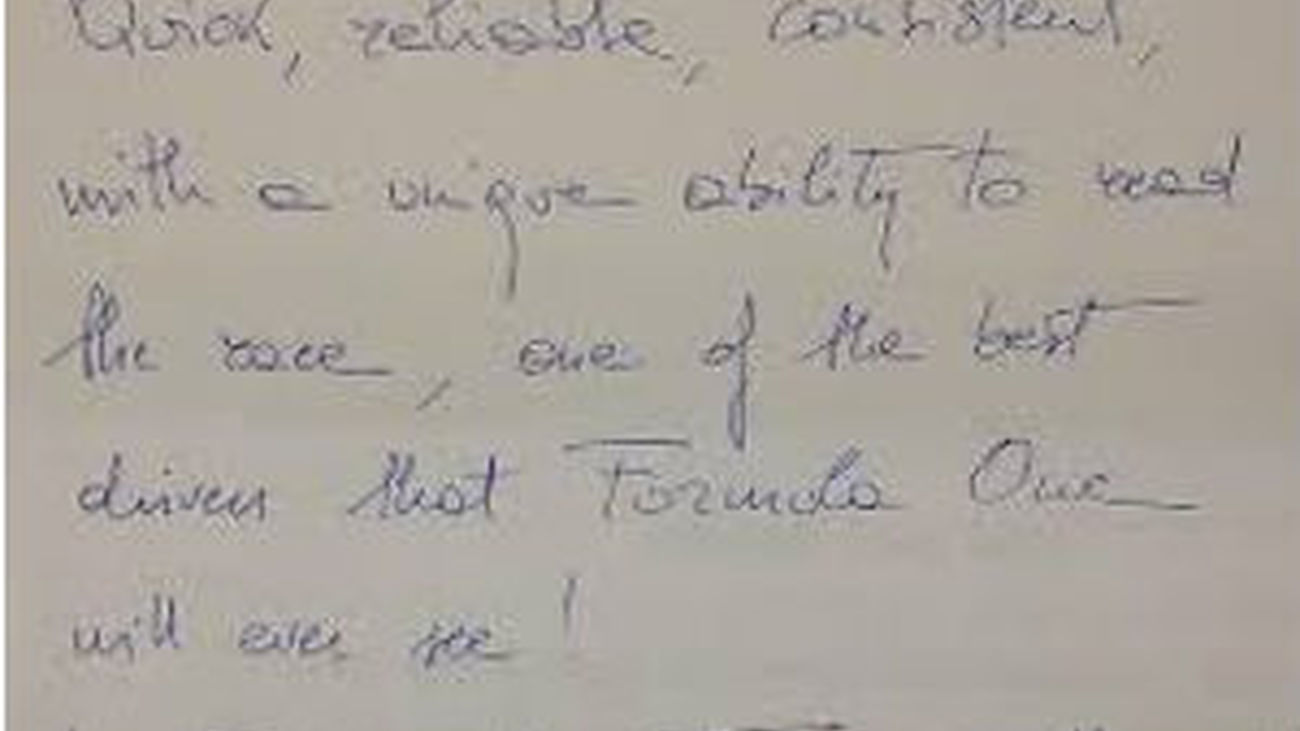 Quick, reliable, consistent,
with a unique ability to read
the race, one of the best
drivers that Formula One
will ever see!